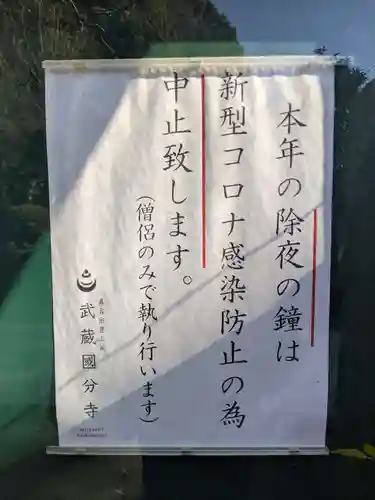 本年の除夜の鐘は
新型コロナ感染防止の為
中止致します。
(僧侶のみで執り行います)
武蔵國分寺